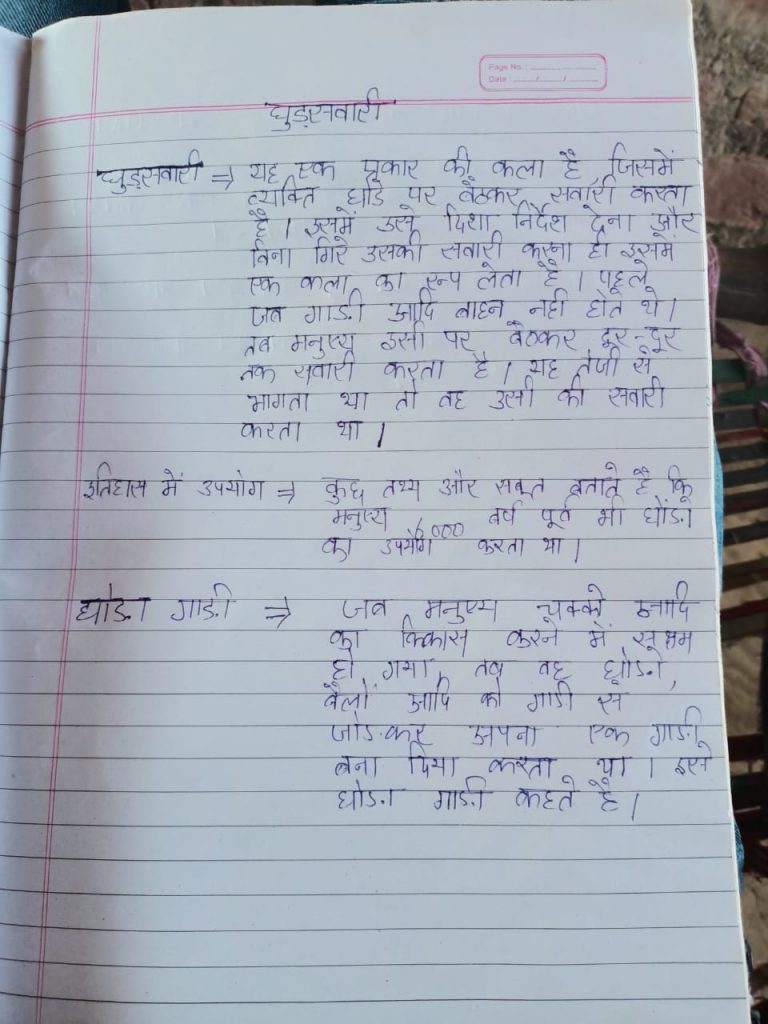 Page No. :
Date : ....../....../......
घुड़सवारी
घुड़सवारी ⇒ यह एक प्रकार की कला है जिसमें
व्यक्ति घोडे पर बैठकर सवारी करता
है । इसमें उसे दिशा निर्देश देना और
बिना गिरे उसकी सवारी करना ही इसमें
एक कला का रूप लेता है । पहले
जब गाडी आदि वाहन नही होते थे ।
तब मनुष्य इसी पर बैठकर दूर-दूर
तक सवारी करता है । यह तेजी से
भागता था तो वह उसी की सवारी
करता था ।
इतिहास में उपयोग ⇒ कुछ तथ्य और सबूत बताते है कि
मनुष्य 6000 वर्ष पूर्व भी घोंडा
का उपयोग करता था ।
घोडा गाडी ⇒ जब मनुष्य चक्को आदि
का विकास करने में सक्षम
हो गया, तब वह घोडो,
बैलों आदि को गाडी से
जोडकर अपना एक गाडी
बना दिया करता था । इसे
घोडा गाडी कहते है ।